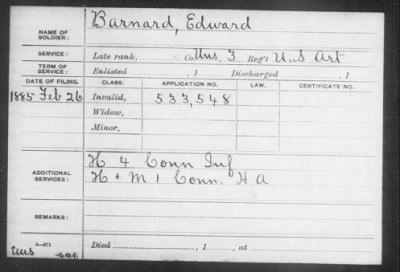 NAME OF SOLDIER: Barnard, Edward
SERVICE: Late rank, Co. Uns, 3 Reg't U.S Art
TERM OF SERVICE: Enlisted , 1 Discharged , 1
DATE OF FILING. CLASS. APPLICATION NO. LAW. CERTIFICATE NO.
1885 Feb 26 Invalid, 533,548
Widow,
Minor,
ADDITIONAL SERVICES: H 4 Conn Inf
H + M 1 Conn. H A
REMARKS:
Died , 1 , at